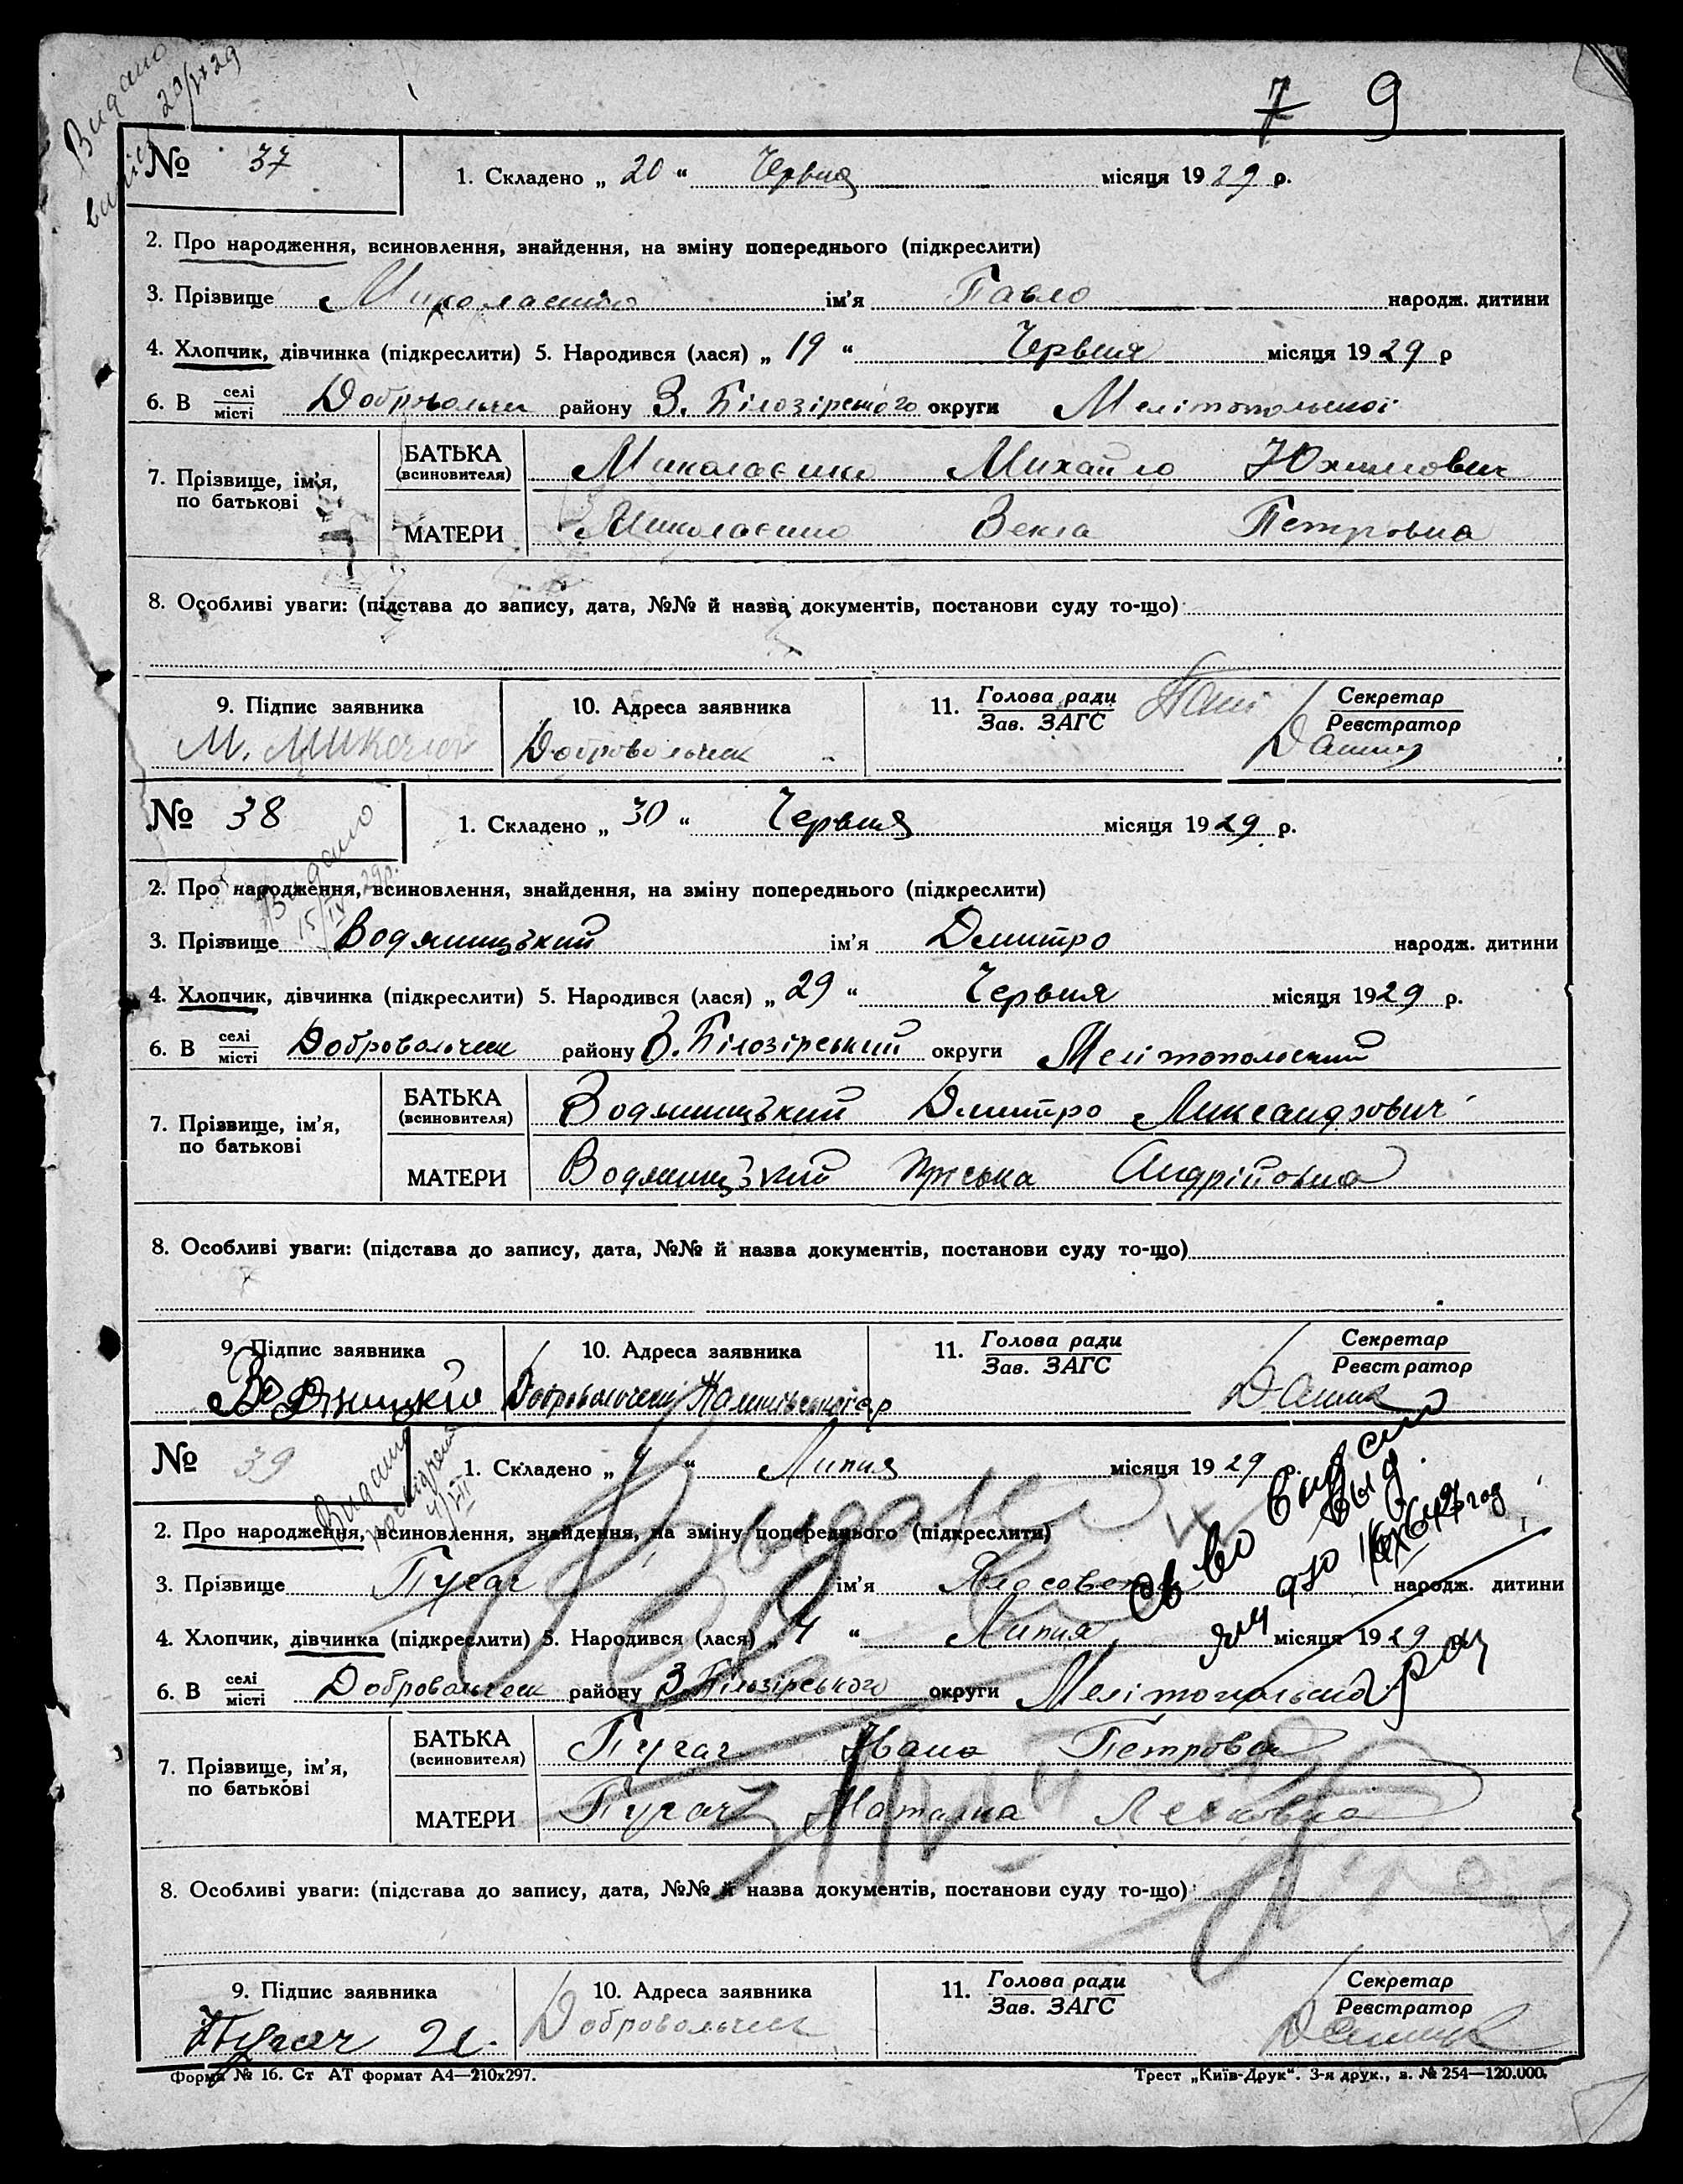 7 9
Видано
№ 37
1. Складено „ 20 “ Червня місяця 1929 р.
2. Про народження, всиновлення, знайдення, на зміну попереднього (підкреслити)
3. Прізвище Миколаєнко ім'я Павло народж. дитини
4. Хлопчик, дівчинка (підкреслити) 5. Народився (лася) „ 19 “ Червня місяця 1929 р
6. В селі місті Добровольчеськ району В. Білозірського округи Мелітопольської
7. Прізвище, ім'я, по батькові
БАТЬКА (всиновителя) Миколаєнко Михайло Юхимович
МАТЕРИ Миколаєнко Векла Петровна
8. Особливі уваги: (підстава до запису, дата, №№ й назва документів, постанови суду то-що)
9. Підпис заявника 10. Адреса заявника 11. Голова ради Зав. ЗАГС Секретар Реєстратор
М. Миколай
№ 38
1. Складено „ 30 “ Червня місяця 1929 р.
Видано
15/IV 29р.
2. Про народження, всиновлення, знайдення, на зміну попереднього (підкреслити)
3. Прізвище Водяницький ім'я Дмитро народж. дитини
4. Хлопчик, дівчинка (підкреслити) 5. Народився (лася) „ 29 “ Червня місяця 1929 р.
6. В селі місті району В. Білозірський округи Мелітопольский
7. Прізвище, ім'я, по батькові
БАТЬКА (всиновителя) Водяницький Дмитро Александрович
МАТЕРИ Водяницзкий Пріська Андрійовна
8. Особливі уваги: (підстава до запису, дата, №№ й назва документів, постанови суду то-що)
9. Підпис заявника 10. Адреса заявника 11. Голова ради Зав. ЗАГС Секретар Реєстратор
№ 39
1. Складено „ 4 “ Липня місяця 1929 р.
Видано
2. Про народження, всиновлення, знайдення, на зміну попереднього (підкреслити)
3. Прізвище Пугач ім'я народж. дитини
4. Хлопчик, дівчинка (підкреслити) 5. Народився (лася) „ 4 “ Липня місяця 1929 р.
6. В селі місті району В. Білозірського округи Мелітопольської
7. Прізвище, ім'я, по батькові
БАТЬКА (всиновителя) Пугач Івана Петрова
МАТЕРИ Пугач Наталка
8. Особливі уваги: (підстава до запису, дата, №№ й назва документів, постанови суду то-що)
9. Підпис заявника 10. Адреса заявника 11. Голова ради Зав. ЗАГС Секретар Реєстратор
Пугач И.
Форма № 16. Ст АТ формат А4—210х297. Трест „Київ-Друк“. 3-я друк., з. № 254—120.000.